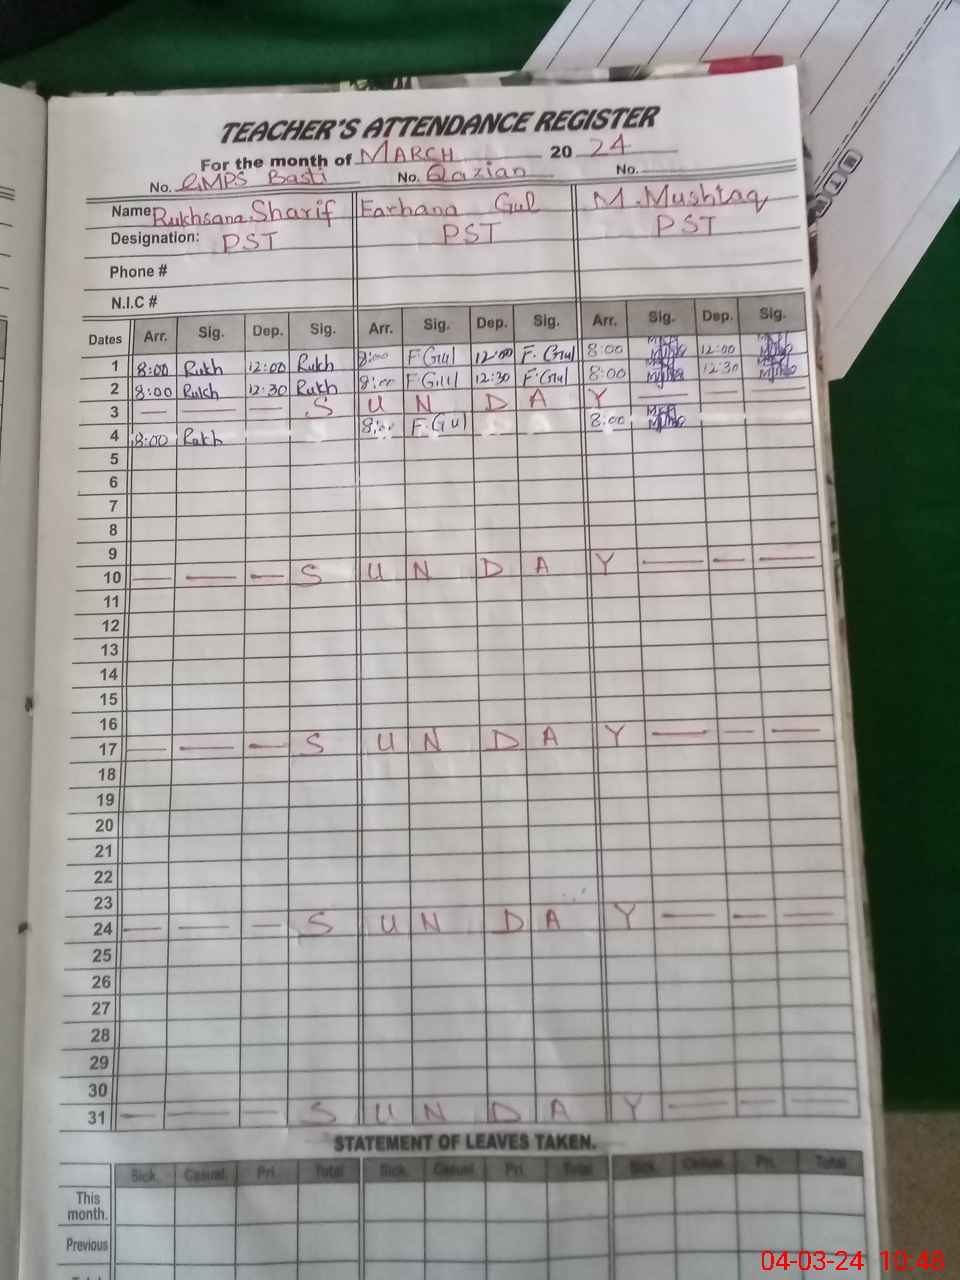 TEACHER'S ATTENDANCE REGISTER
For the month of MARCH 20 24
No. GMPS Basti No. Qazian No.
Name Rukhsana Sharif Farhana Gul M. Mushtaq
Designation: PST PST PST
Phone #
N.I.C #
Dates Arr. Sig. Dep. Sig. Arr. Sig. Dep. Sig. Arr. Sig. Dep. Sig.
1 8:00 Rukh 12:00 Rukh 8:00 F.Gul 12:00 F.Gul 8:00 12:00
2 8:00 Rukh 12:30 Rukh 8:00 F.Gul 12:30 F.Gul 8:00 12:30
3 — — S U N D A Y — — —
4 8:00 Rukh 8:00 F.Gul 8:00
5
6
7
8
9
10 — — — S U N D A Y — — —
11
12
13
14
15
16
17 — — — S U N D A Y — — —
18
19
20
21
22
23
24 — — — S U N D A Y — — —
25
26
27
28
29
30
31 — — — S U N D A Y — — —
STATEMENT OF LEAVES TAKEN.
Sick. Casual. Pri. Total Sick. Casual. Pri. Total Sick. Casual. Pri. Total
This
month.
Previous
04-03-24 10:48